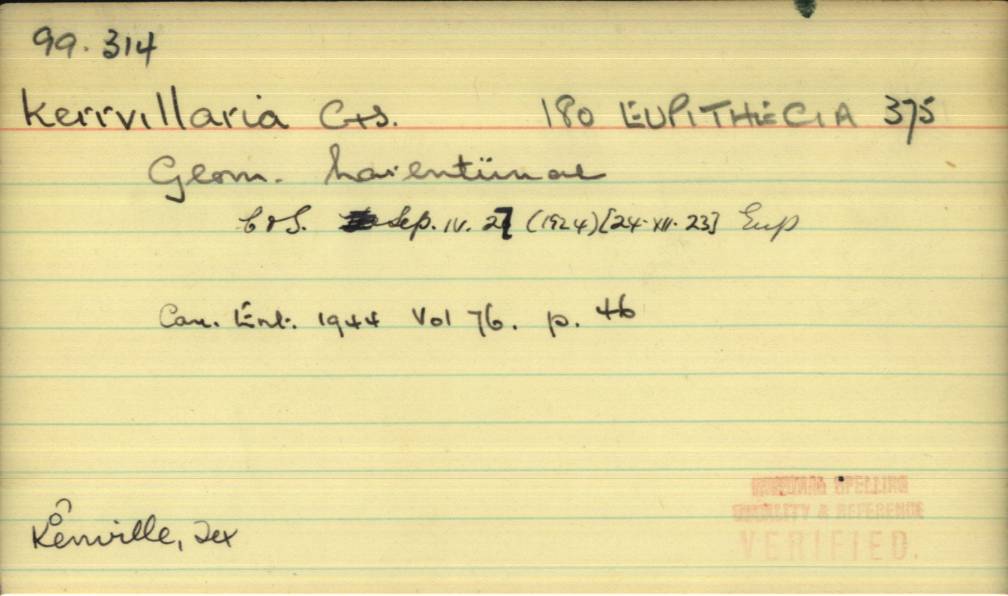 99.314
kerrvillaria C+S. 180 EUPITHECIA 375
Geom. Larentiinae
C & S. Sep. IV. 27 (1924) [24-XII-23] Eup
Can. Ent. 1944 Vol 76. p. 46
SPELLING
LOCALITY & REFERENCE
VERIFIED.
Kerrville, Tex